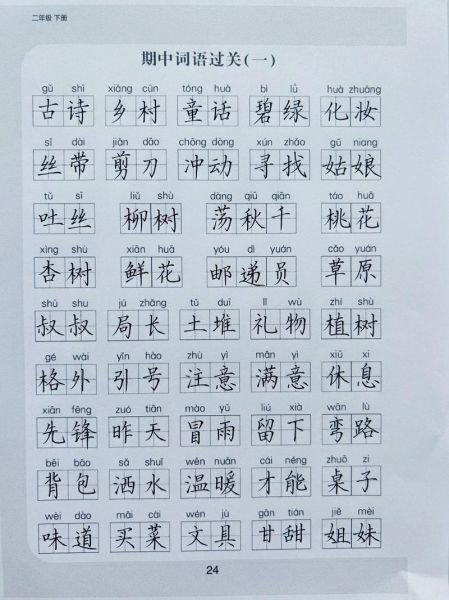 二年级 下册
期中词语过关(一)
gǔ shī xiāng cūn tóng huà bì lǜ huà zhuāng
古诗 乡村 童话 碧绿 化妆
sī dài jiǎn dāo chōng dòng xún zhǎo gū niang
丝带 剪刀 冲动 寻找 姑娘
tǔ sī liǔ shù dàng qiū qiān táo huā
吐丝 柳树 荡秋千 桃花
xìng shù xiān huā yóu dì yuán cǎo yuán
杏树 鲜花 邮递员 草原
shū shu jú zhǎng tǔ duī lǐ wù zhí shù
叔叔 局长 土堆 礼物 植树
gé wài yǐn hào zhù yì mǎn yì xiū xi
格外 引号 注意 满意 休息
xiān fēng zuó tiān mào yǔ liú xià wān lù
先锋 昨天 冒雨 留下 弯路
bēi bāo sǎ shuǐ wēn nuǎn cái néng zhuō zi
背包 洒水 温暖 才能 桌子
wèi dào mǎi cài wén jù gān tián jiě mèi
味道 买菜 文具 甘甜 姐妹
24